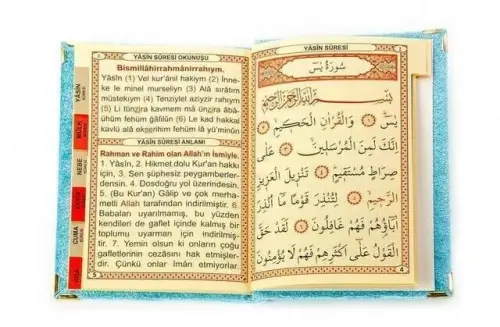 YÂSÎN SÛRESİ OKUNUŞU
Bismillâhirrahmânirrahıym.
Yâsîn (1) Vel kur'ânil hakiym (2) İnne-
ke le minel murseliyn (3) Alâ sırâtım
müstekıym (4) Tenziylel aziyzir rahiym
(5) Li tünzira kavmem mâ ünzira âbâ-
ühüm fehüm ğâfilûn (6) Le kad hakkal
kavlü alâ ekserihim fehüm lâ yü'minûn
YÂSÎN SÛRESİ ANLAMI
Rahman ve Rahim olan Allah'ın İsmiyle.
1. Yâsîn, 2. Hikmet dolu Kur'an hakkı
için, 3. Sen şüphesiz peygamberler-
densin. 4. Dosdoğru yol üzerindesin.
5. (Bu Kur'an) Gâlip ve çok merha-
metli Allah tarafından indirilmiştir. 6.
Babaları uyarılmamış, bu yüzden
kendileri de gaflet içinde kalmış bir
toplumu uyarman için indirilmiş-
tir. 7. Yemin olsun ki onların çoğu
gafletlerinin cezâsını hak etmişler-
dir. Çünkü onlar iman etmiyorlar.
5
YÂSÎN
MÜLK
NEBE
CUMA
YÂSÎN SÛRESİ
سُورَةُ يٰسٓ
بِسْمِ اللّٰهِ الرَّحْمٰنِ الرَّحِيمِ
يٰسٓ ﴿١﴾ وَالْقُرْاٰنِ الْحَكِيمِ ﴿٢﴾
اِنَّكَ لَمِنَ الْمُرْسَلِينَ ﴿٣﴾ عَلٰى
صِرَاطٍ مُسْتَقِيمٍ ﴿٤﴾ تَنْزِيلَ الْعَزِيزِ
الرَّحِيمِ ﴿٥﴾ لِتُنْذِرَ قَوْمًا مَٓا اُنْذِرَ
اٰبَٓاؤُهُمْ فَهُمْ غَافِلُونَ ﴿٦﴾ لَقَدْ حَقَّ
الْقَوْلُ عَلٰٓى اَكْثَرِهِمْ فَهُمْ لَا يُؤْمِنُونَ
4